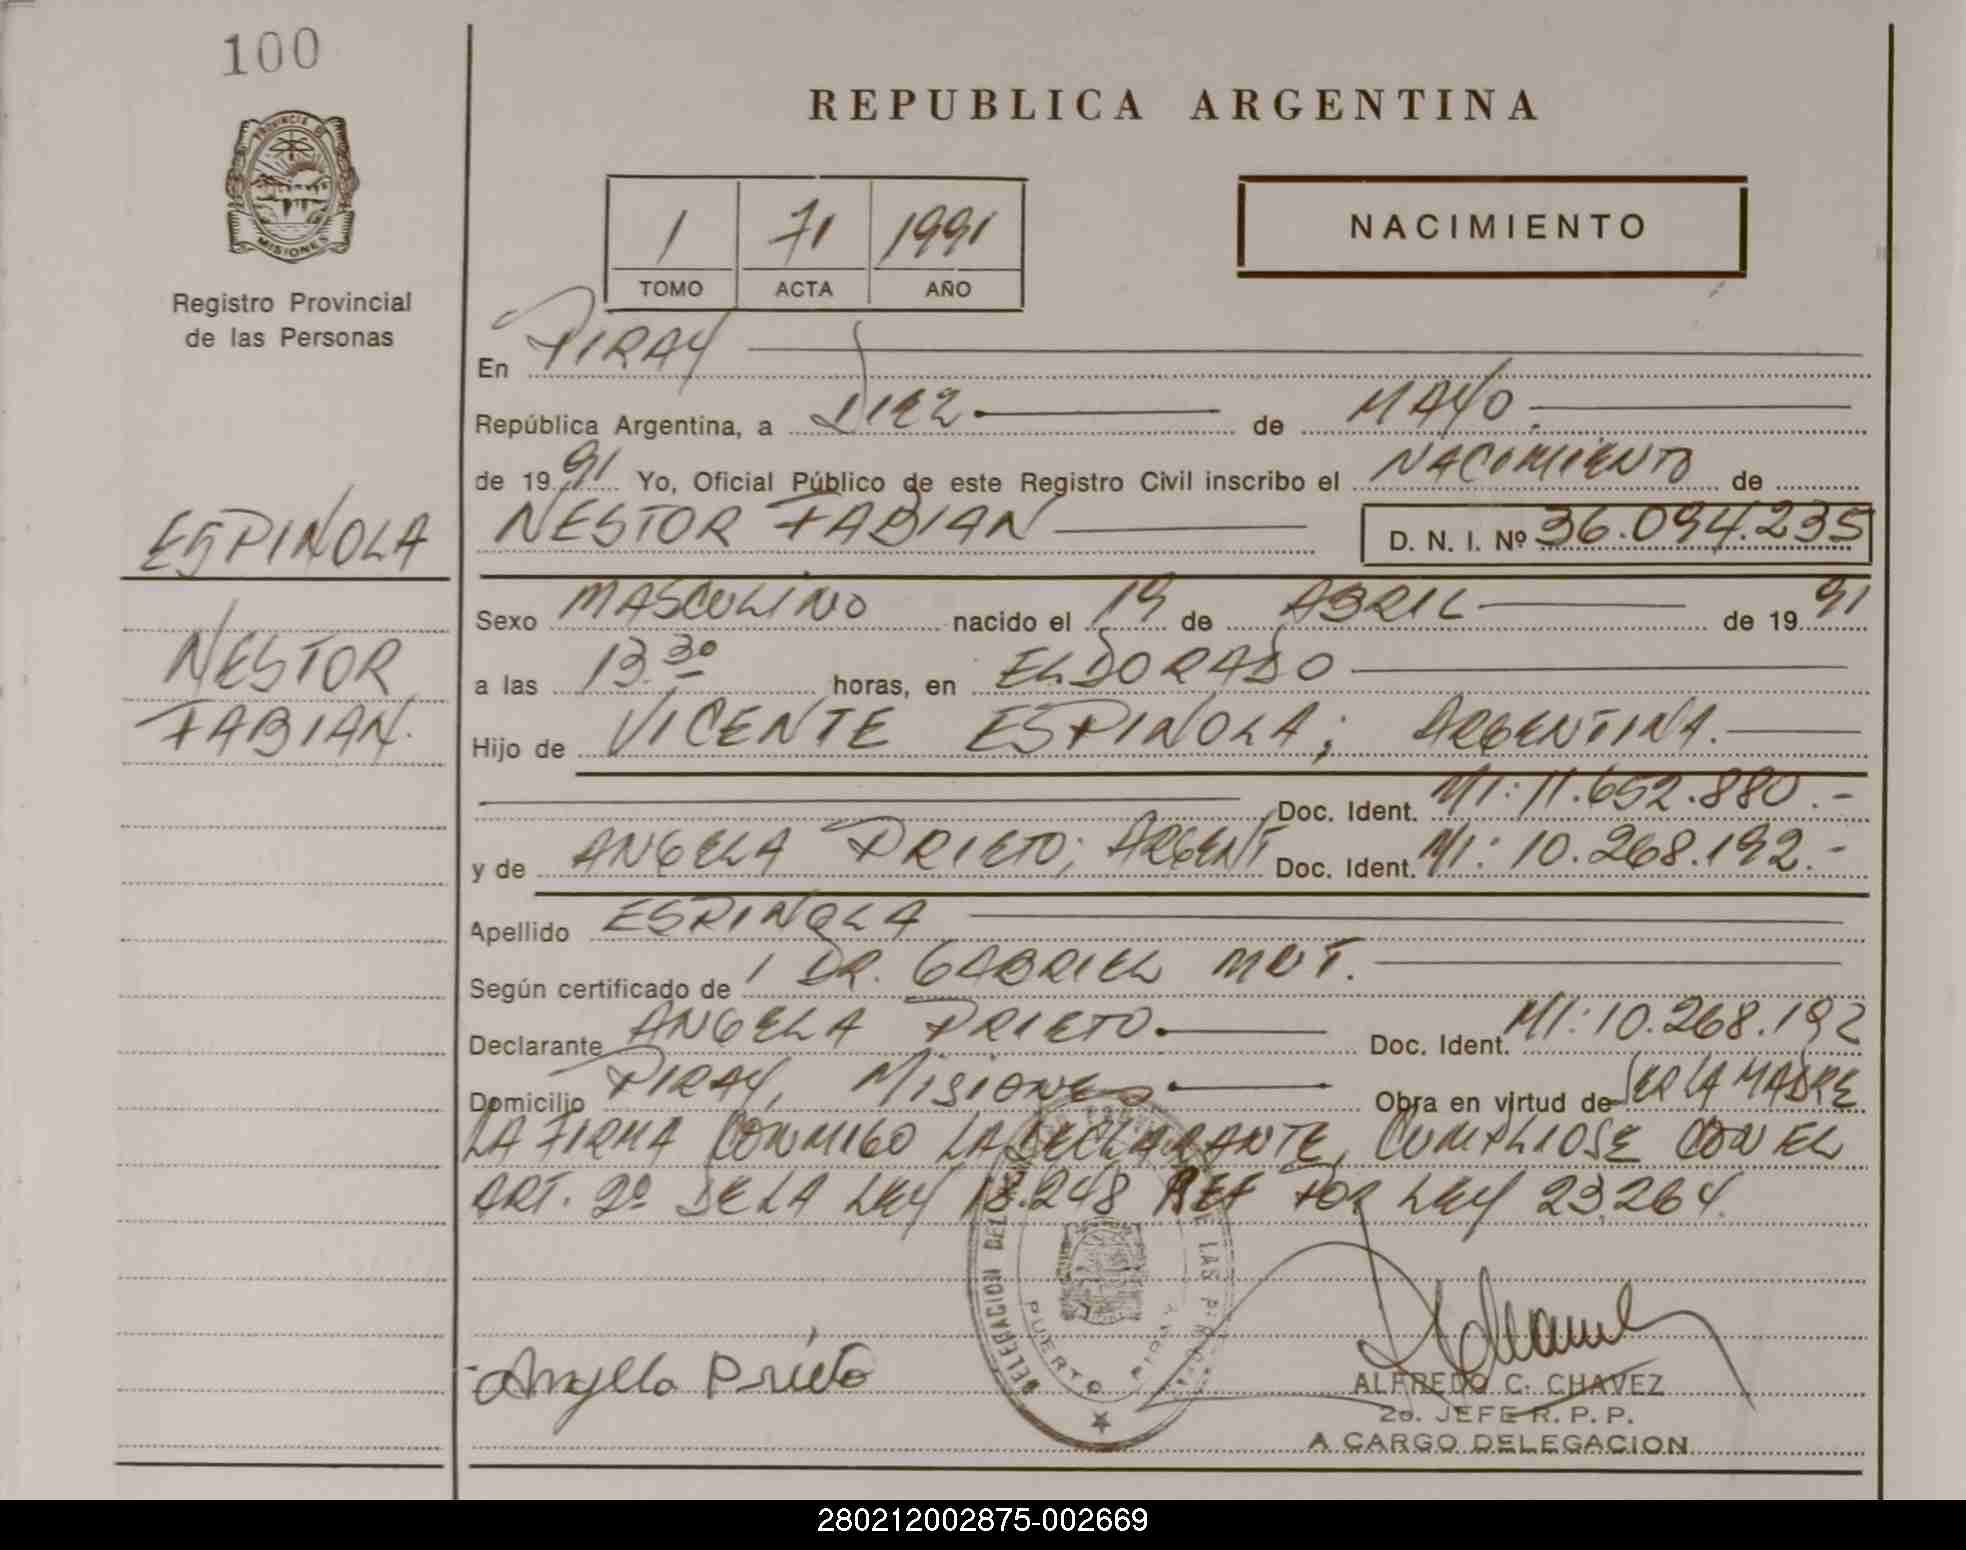 100
REPUBLICA ARGENTINA
PROVINCIA DE
MISIONES
Registro Provincial
de las Personas
1 71 1991
TOMO ACTA AÑO
NACIMIENTO
En PIRAY
República Argentina, a DIEZ de MAYO.
de 1991 Yo, Oficial Público de este Registro Civil inscribo el NACIMIENTO de
NESTOR FABIAN D. N. I. Nº 36.094.235
ESPINOLA
NESTOR
FABIAN.
Sexo MASCULINO nacido el 19 de ABRIL de 1991
a las 13.30 horas, en ELDORADO
Hijo de VICENTE ESPINOLA; ARGENTINA.
Doc. Ident. MI: 11.652.880.-
y de ANGELA PRIETO; ARGENT Doc. Ident. MI: 10.268.192.-
Apellido ESPINOLA
Según certificado de DR. GABRIEL
Declarante ANGELA PRIETO. Doc. Ident. MI: 10.268.192
Domicilio PIRAY, MISIONES Obra en virtud de SER LA MADRE
LA FIRMA CONMIGO LA DECLARANTE, CUMPLIOSE CON EL
ART. 2º DE LA LEY 18.248 REF POR LEY 23.264.
DELEGACION DEL DE LAS
PUERTO PIRAY
Angella Prieto
ALFREDO C. CHAVEZ
2o. JEFE R. P. P.
A CARGO DELEGACION
280212002875-002669